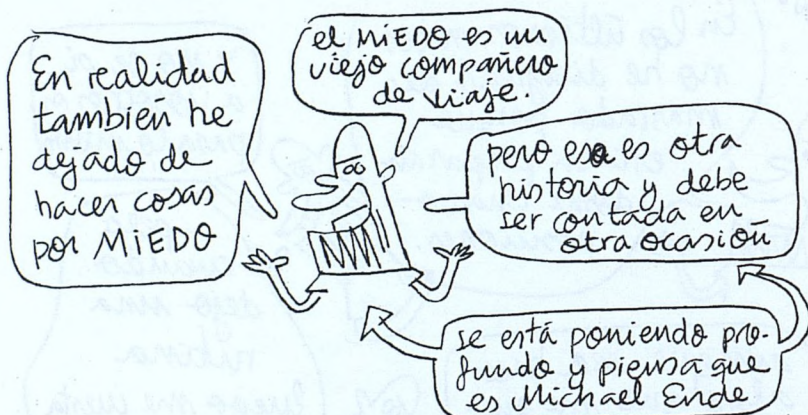 En realidad
también he
dejado de
hacer cosas
por MIEDO
el MIEDO es un
viejo compañero
de viaje.
pero esa es otra
historia y debe
ser contada en
otra ocasión
se está poniendo pro-
fundo y piensa que
es Michael Ende